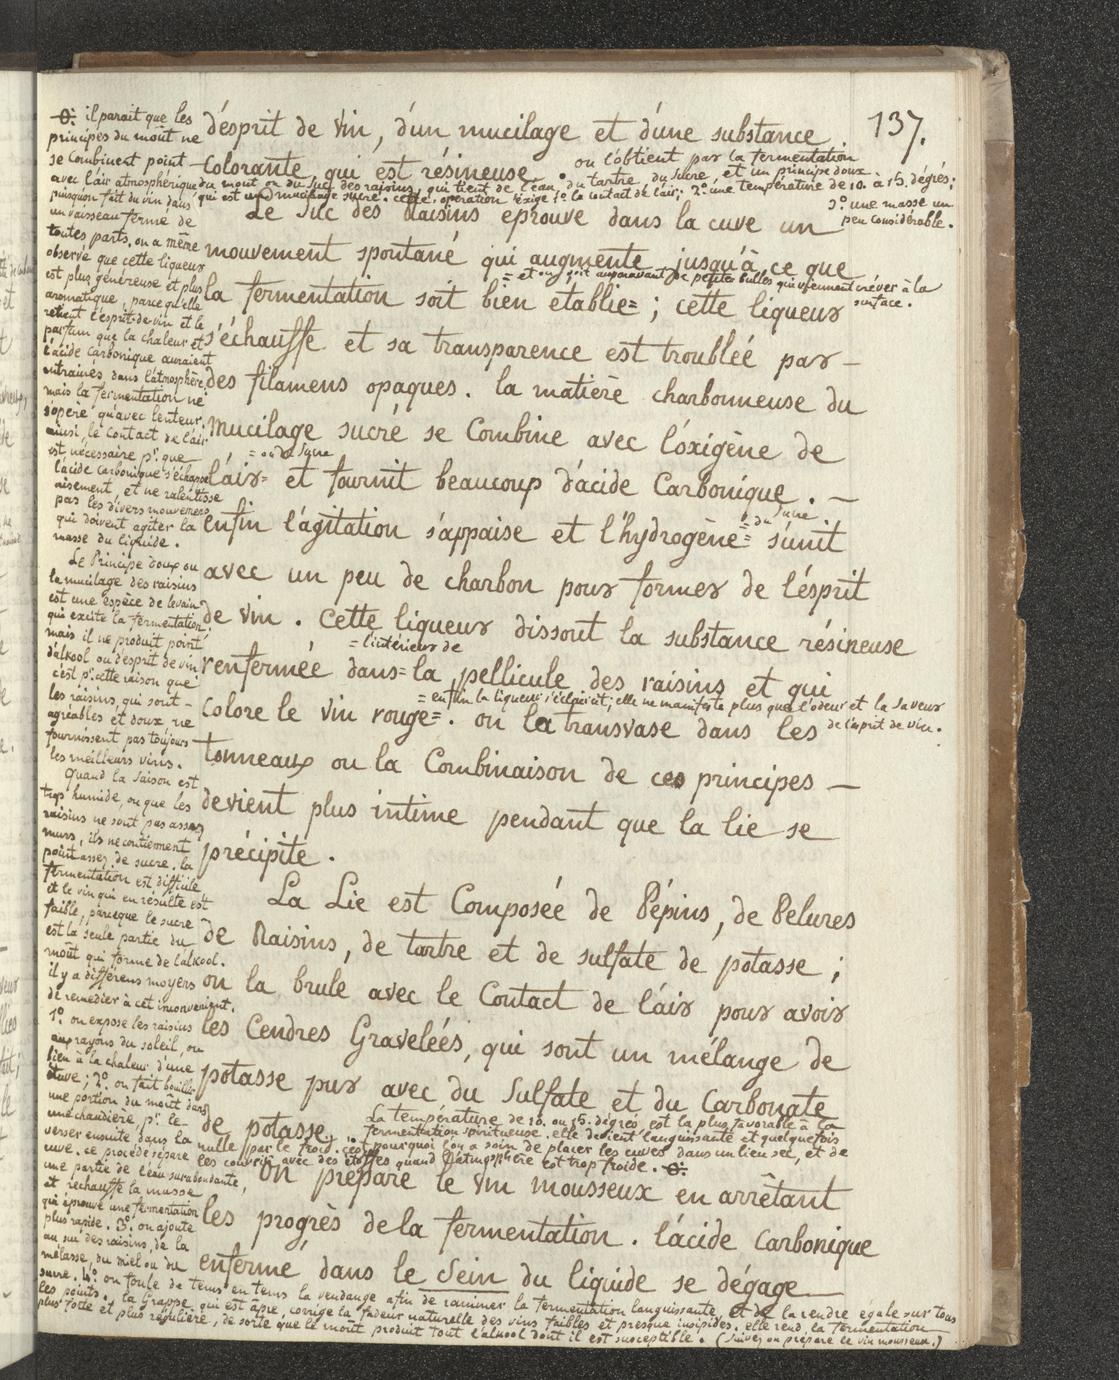 137.
d'ésprit de vin, d'un mucilage et d'une substance
Colorante, qui est résineuse. on l'obtient par la fermentation
du mout ou du suc des raisins, qui tient de l'eau, du tartre, du sucre, et un principe doux.
qui est un mucilage sucré. cette opération éxige 1.º le contact de l'air; 2.º une température de 10. à 15. dégrés;
3.º une masse un
peu considérable.
Le Suc des Raisins éprouve dans la cuve un
mouvement spontané qui augmente jusqu'à ce que
= et on voit auparavant de petites bulles qui viennent créver à la
surface.
la fermentation soit bien établie= ; cette liqueur
s'échauffe et sa transparence est troubleé par —
des filamens opaques. la matière charbonneuse du
mucilage sucré se Combine avec l'oxigène de
= ou du sucre
l'air= et fournit beaucoup d'acide Carbonique. —
= du sucre.
enfin l'agitation s'appaise et l'hydrogène= s'unit
avec un peu de charbon pour former de l'ésprit
de vin. Cette liqueur dissout la substance résineuse
= l'intérieur de
renfermée dans= la pellicule des raisins et qui
= enfin la liqueur s'éclaircit; elle ne manifeste plus que l'odeur et la saveur
de l'esprit de vin.
Colore le vin rouge=. on la transvase dans les
tonneaux ou la Combinaison de ces principes —
devient plus intime pendant que la lie se
précipite.
La Lie est Composée de Pépins, de Pelures
de Raisins, de tartre et de sulfate de potasse;
on la brule avec le Contact de l'air pour avoir
les Cendres Graveleés, qui sont un mélange de
potasse pur avec du Sulfate et du Carbonate
de potasse. La température de 10. ou 15. dégrés, est la plus favorable à la
fermentation spiritueuse. elle devient languissante et quelquefois
nulle par le froid. c'est pourquoi l'on a soin de placer les cuves dans un lieu sec, et de
les couvrir avec des étoffes quand l'atmosphère est trop froide. -O-:
On prépare le vin mousseux en arrêtant
les progrès de la fermentation. l'acide Carbonique
enfermé dans le Sein du liquide se dégage
-O-: il parait que les
principes du moût ne
se combinent point
avec l'air atmosphérique
puisqu'on fait du vin dans
un vaisseau fermé de
toutes parts. on a même
observé que cette liqueur
est plus généreuse et plus
aromatique, parce qu'elle
retient l'esprit-de vin et le
parfum que la chaleur et
l'acide carbonique auraient
entrainés dans l'atmosphère,
mais la fermentation ne
s'opère qu'avec lenteur.
ainsi, le contact de l'air
est nécessaire pr. que
l'acide carbonique s'échappe
aisement, et ne ralentisse
pas les divers mouvemens
qui doivent agiter la
masse du liquide.
Le Principe doux ou
le mucilage des raisins
est une espèce de levain
qui excite la fermentation
mais il ne produit point
d'alkool ou d'esprit de vin
c'est pr. cette raison que
les raisins, qui sont —
agréables et doux ne
fournissent pas toujours
les meilleurs vins.
Quand la saison est
trop humide, ou que les
raisins ne sont pas assez
murs, ils ne contiennent
point assez de sucre. la
fermentation est difficile
et le vin qui en résulte est
faible, parceque le sucre
est la seule partie du
moût qui forme de l'alkool.
il y a différens moyens
de remedier à cet inconvenient.
1.º on expose les raisins
aux rayons du soleil, ou
bien à la chaleur d'une
étuve; 2.º on fait bouillir
une portion du moût dans
une chaudière, pr. le
verser ensuite dans la
cuve. ce procédé sépare
une partie de l'eau surabondante,
et réchauffe la masse
qui éprouve une fermentation
plus rapide. 3.º on ajoute
au suc des raisins, de la
mélasse, du miel ou du
sucre. 4.º on foule de tems en tems la vendange afin de ranimer la fermentation languissante, et de la rendre egale sur tous
les points. la Grappe qui est âpre, corrige la fadeur naturelle des vins faibles et presque insipides. elle rend la fermentation
plus forte et plus régulière, de sorte que le moût produit tout l'alcool dont il est susceptible. (suivez on prépare le vin mousseux.)